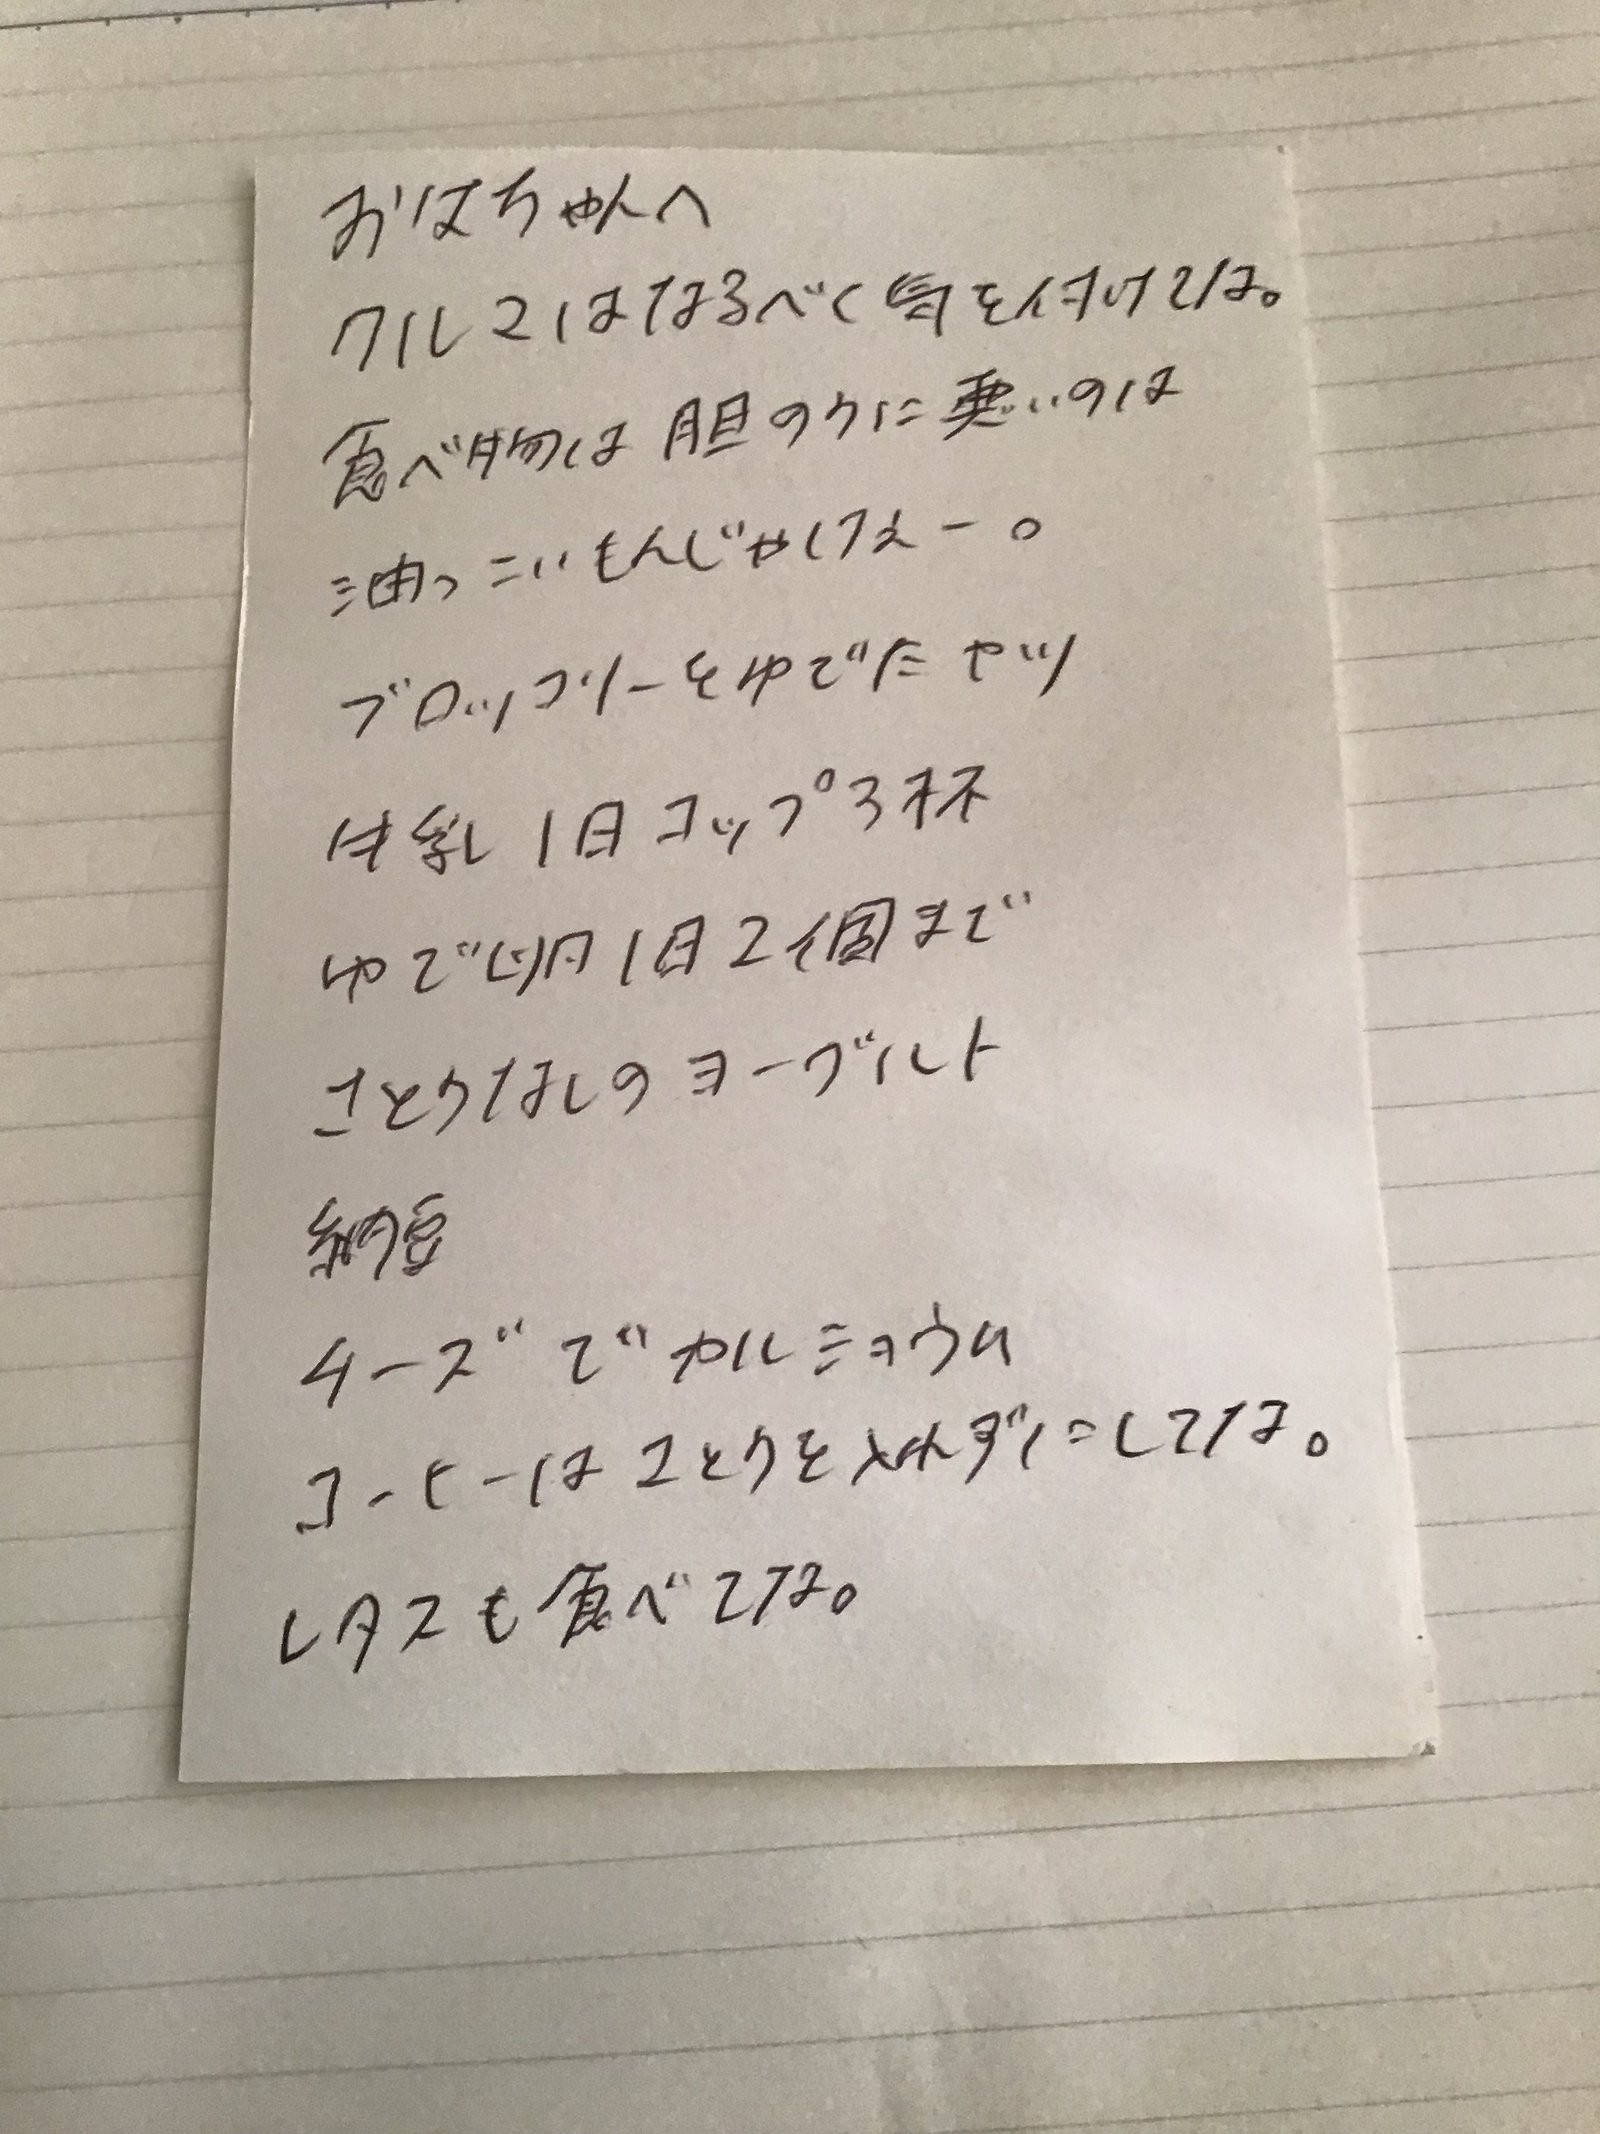 おばちゃんへ
クルマはなるべく気を付けてな。
食べ物は胆のうに悪いのは
油っこいもんじゃけえー。
ブロッコリーをゆでたヤツ
牛乳1日コップ3杯
ゆで卵1日2個まで
さとうなしのヨーグルト
納豆
チーズでカルショウム
コーヒーはさとうを入れずにしてな。
レタスも食べてな。